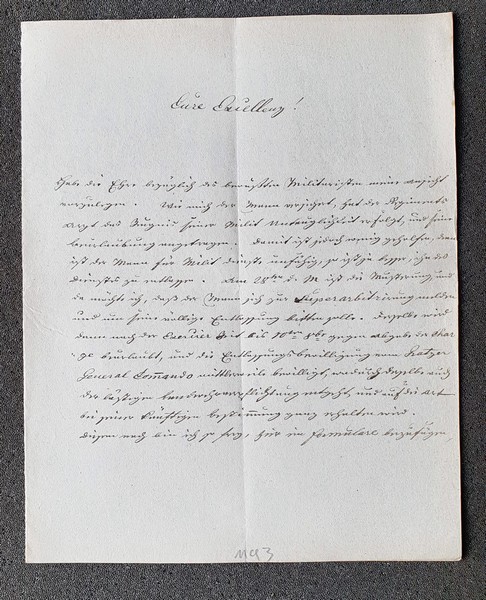 Eure Excellenz!
Habe die Ehre bezüglich des bewußten Militaristen meine Ansicht
vorzulegen. Wie mich der Mann versichert, hat der Regiments
arzt das Zeugniß seiner Milit Untauglichkeit erfolgt, und seine
beurlaubung angetragen. Damit ist jedoch wenig geholfen, denn
ist der Mann für Milit dienste unfähig, so ist ja besser, ihn des
dienstes zu entlassen. Am 28ten d. M ist die Musterung, und
da möchte ich, daß der Mann sich zur Superarbitrirung melden
und um seine völlige Entlassung bitten solle. derselbe wird
dann nach der Exercier Zeit bis 10ten 8br gegen abgabe der Char
ge beurlaubt, und die Entlassungsbewilligung vom
General Comando mittlerweile bewilligt, wodurch derselbe auch
der lästigen entgeht, und auf die Art
bei seiner künftigen bestimmung ganz erhalten wird.
diesem nach bin ich so frey, hier ein Formulare beizufügen,
1193